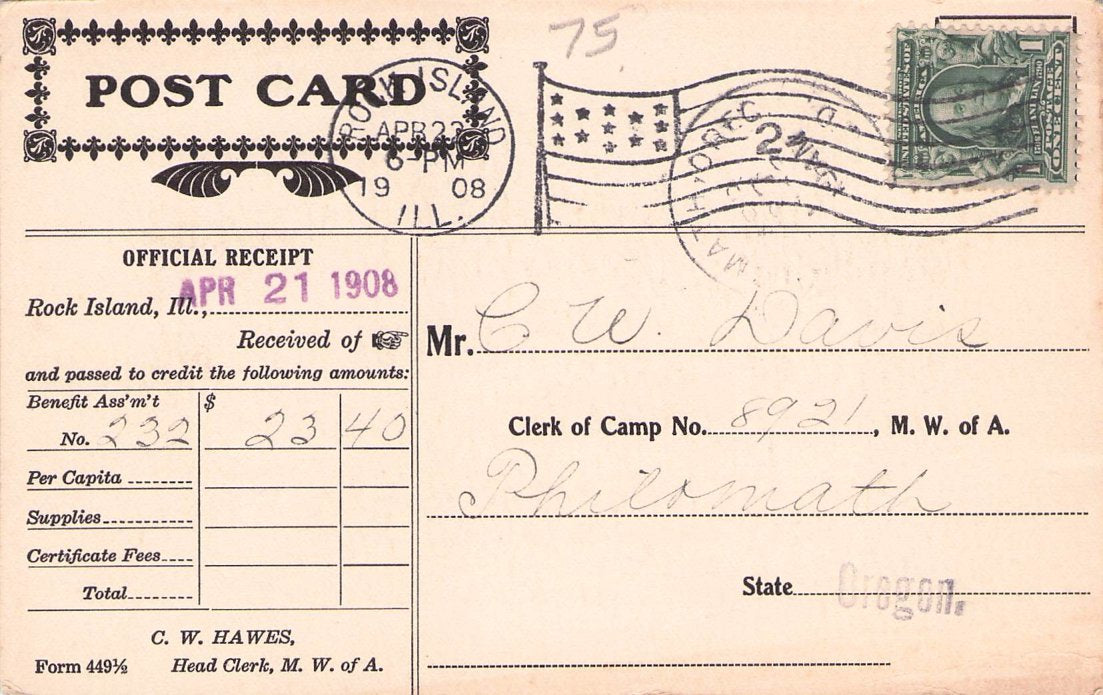 75
POST CARD
ROCK ISLAND
APR 22
6-PM
19 08
ILL.
1 1
UNITED STATES OF AMERICA
FRANKLIN
ONE CENT
OFFICIAL RECEIPT
APR 21 1908
Rock Island, Ill.,
Received of
and passed to credit the following amounts:
Benefit Ass'm't $
No. 232 23 40
Per Capita
Supplies
Certificate Fees
Total
C. W. HAWES,
Form 449½ Head Clerk, M. W. of A.
Mr. C W. Davis
Clerk of Camp No. 8921, M. W. of A.
Philomath
State Oregon.